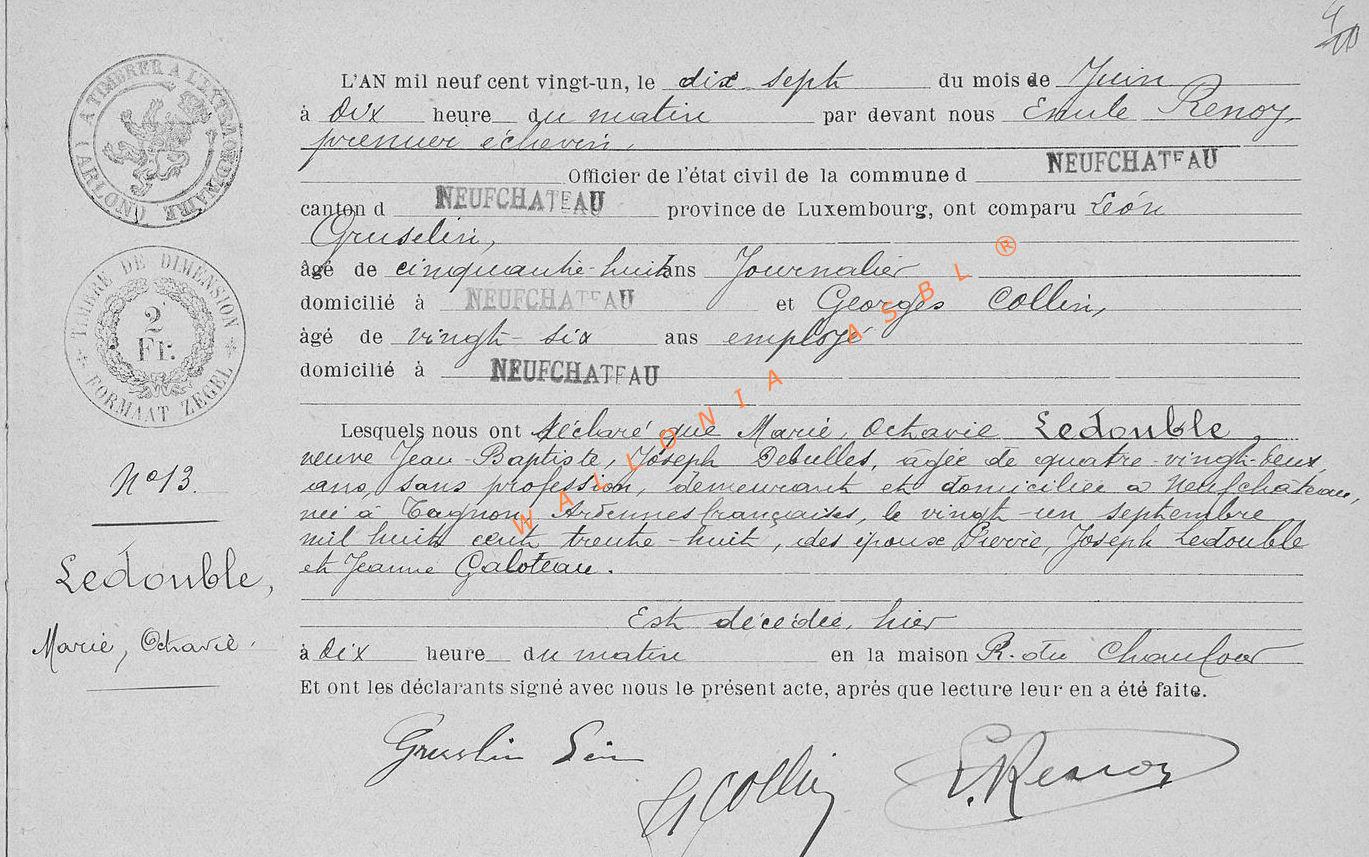 L'AN mil neuf cent vingt-un, le dix sept du mois de Juin
à Dix heure du matin par devant nous Emile Renoy,
premier échevin,
Officier de l'état civil de la commune d NEUFCHATEAU
canton d NEUFCHATEAU province de Luxembourg, ont comparu Léon
Gruselin,
âgé de cinquante-huit ans Journalier
domicilié à NEUFCHATEAU et Georges Collin,
âgé de vingt-six ans employé
domicilié à NEUFCHATEAU
Lesquels nous ont déclaré que Marie, Octavie Ledouble,
veuve Jean-Baptiste, Joseph Debulles, âgée de quatre-vingt-deux
ans, sans profession, demeurant et domiciliée à Neufchâteau,
née à Tagnon, Ardennes françaises, le vingt-un septembre
mil huit cent trente-huit, des époux Pierre, Joseph Ledouble
et Jeanne Galoteau.
Est décédée, hier
à Dix heure du matin en la maison R. du Chaufour
Et ont les déclarants signé avec nous le présent acte, après que lecture leur en a été faite.
Gruslin Léon
G Collin
E. Renoy
A TIMBRER A L'EXTRAORDINAIRE (ARLON)
TIMBRE DE DIMENSION
2 Fr.
FORMAAT ZEGEL
No 13.
Ledouble,
Marie, Octavie.
WALLONIA ASBL ®